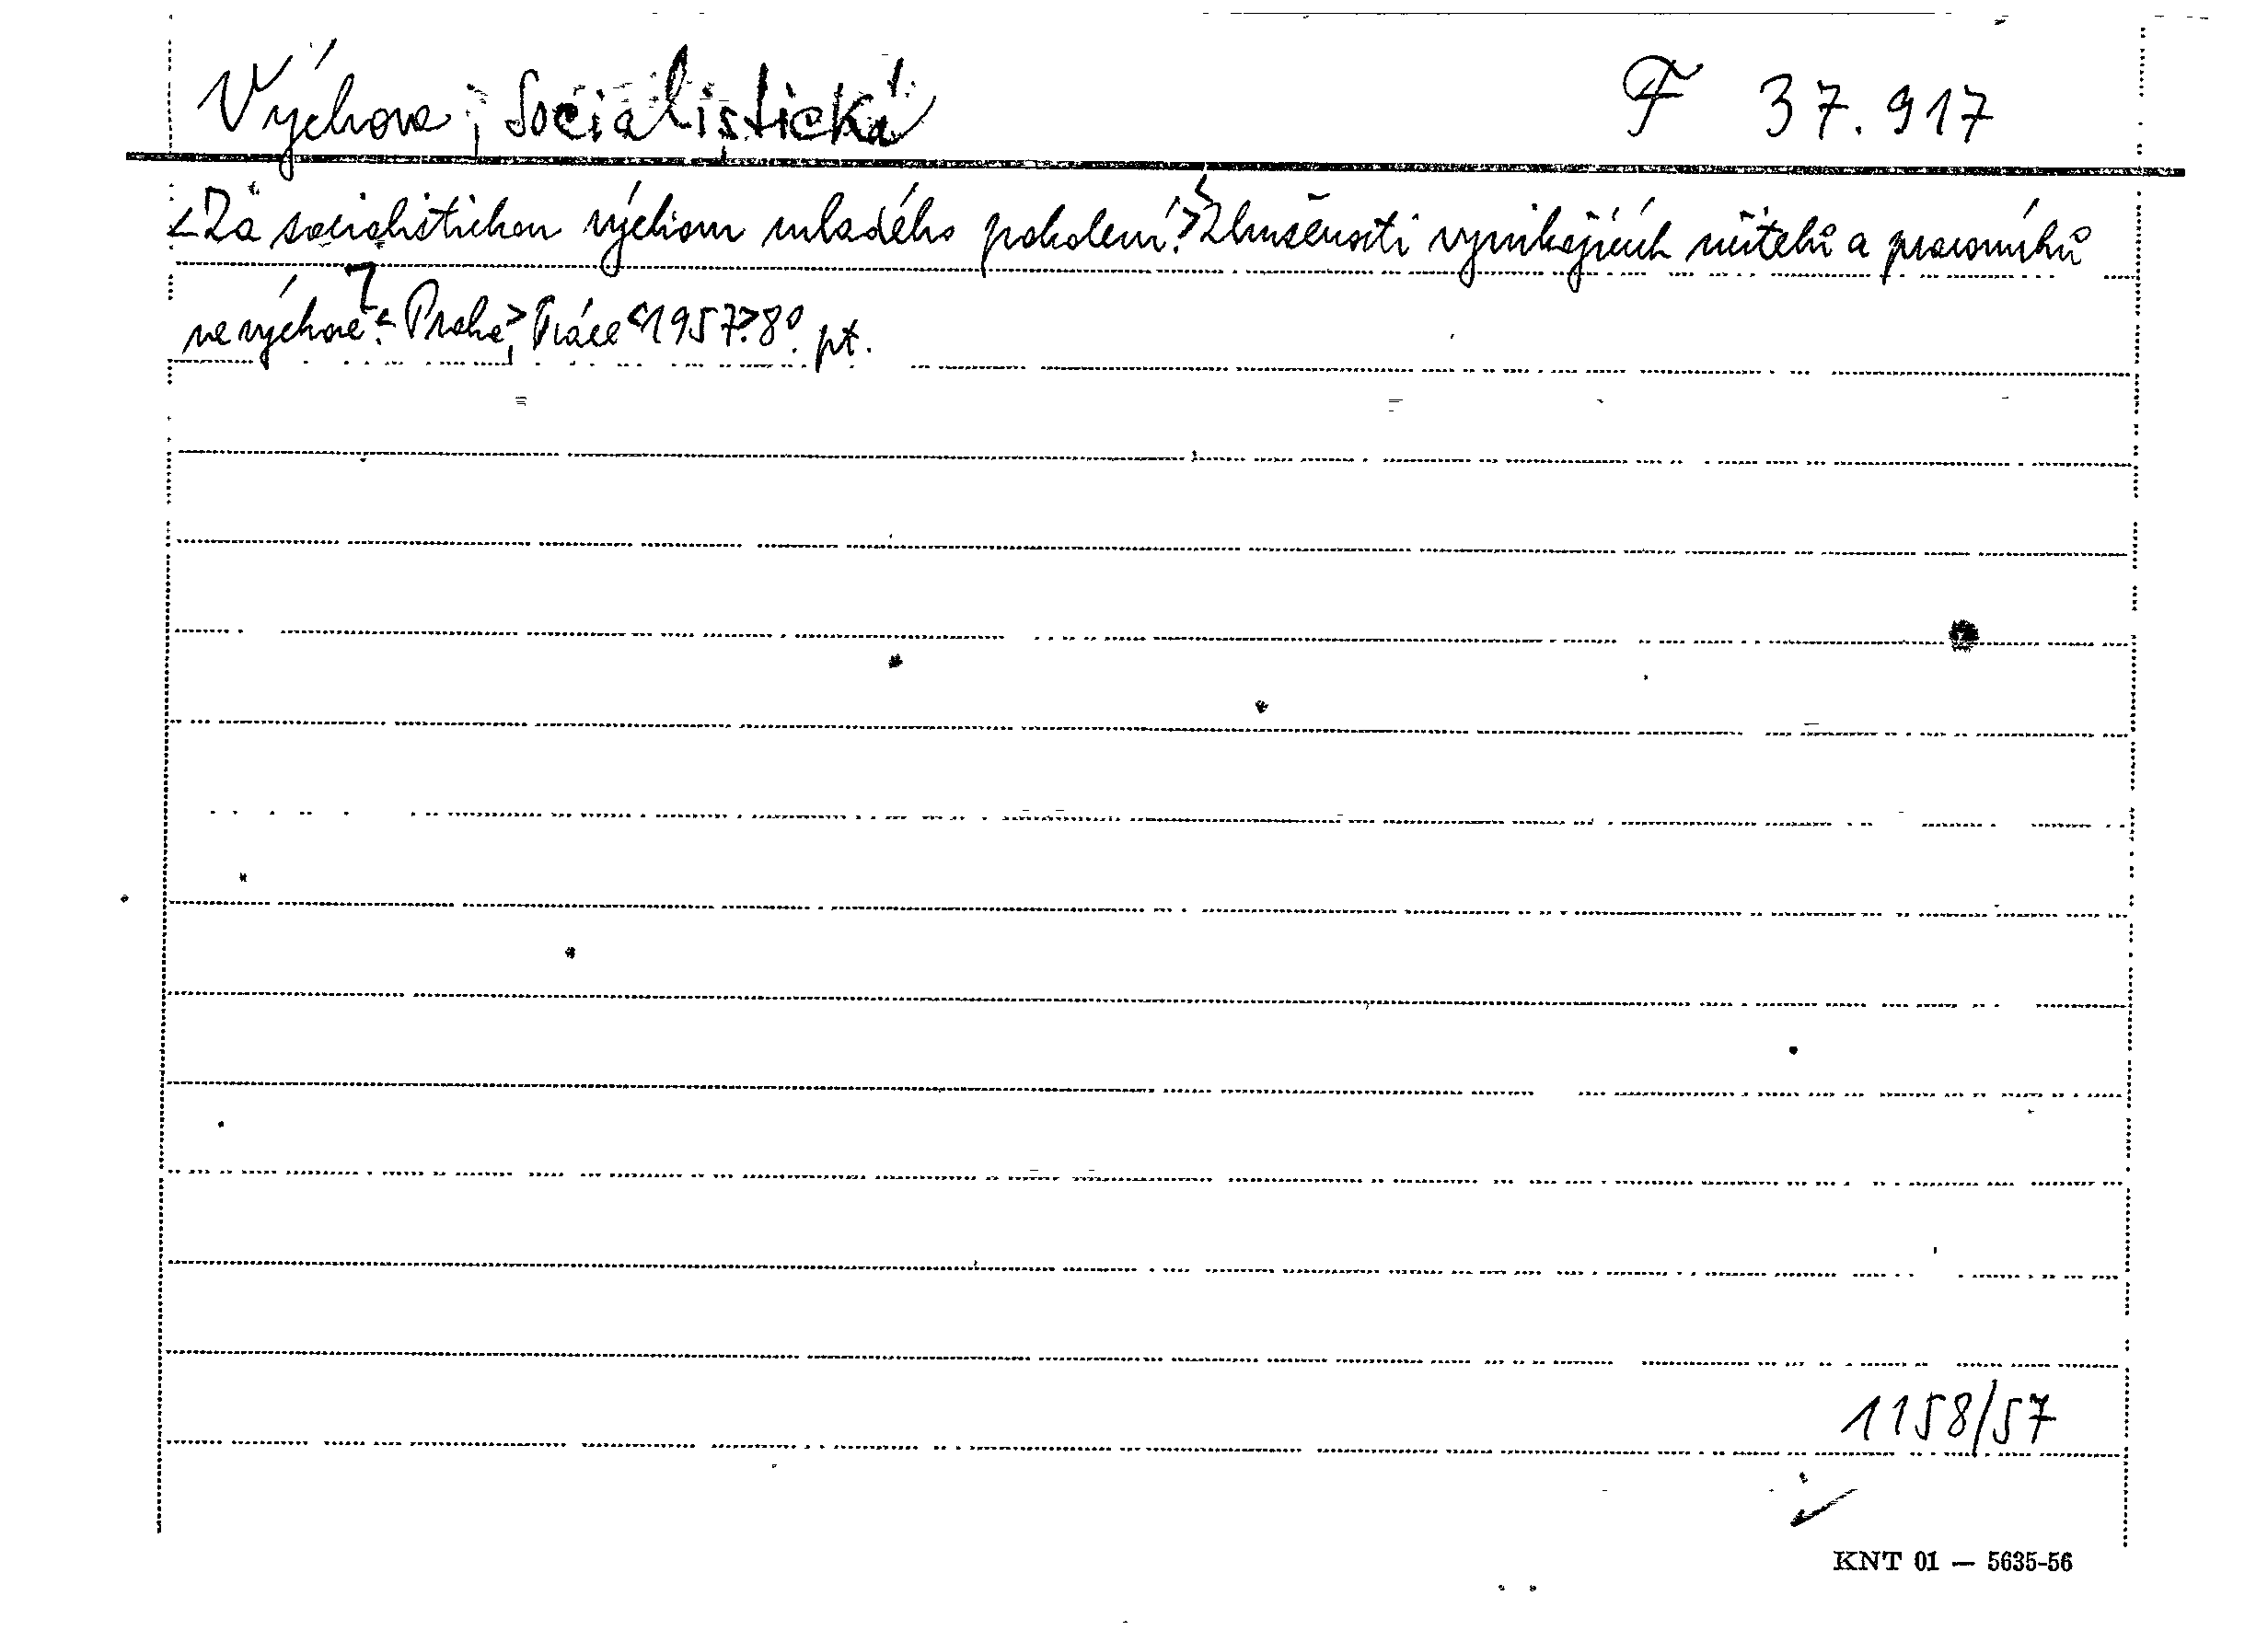 Výchova, socialistická F 37.917
<Za socialistickou výchovu mladého pokolení.> Zkušenosti vynikajících učitelů a pracovníků
ve výchově. <Praha>, Práce <1957>. 8°. pt.
1158/57
KNT 01 — 5635-56